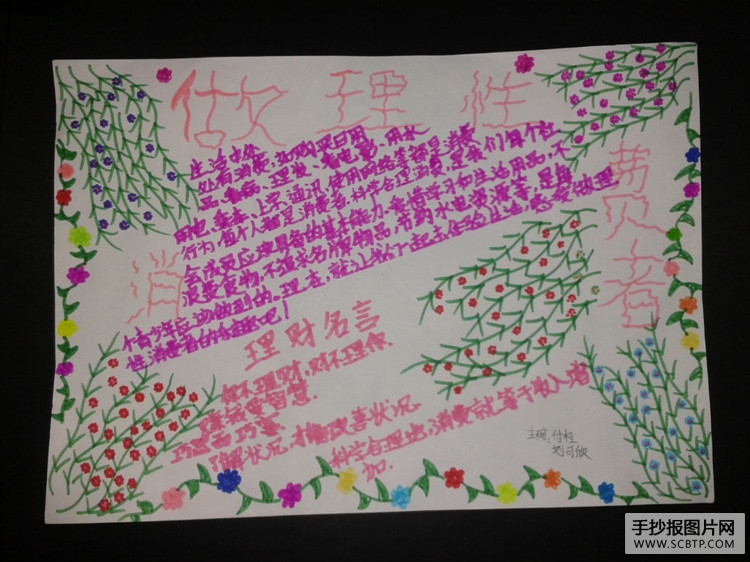 做理性
消费者
生活中处
处有消费,如购买日用
品、看病、理发、看电影、用水
用电、乘车、上学、通讯、使用网络等都是消费
行为,每个人都是消费者,科学合理消费,是我们每个社
会成员应该具备的基本能力。爱惜学习和生活用品,不
浪费食物,不追求名牌物品,节约水电资源等,是每
个青少年应该做到的。现在,就让我们一起去体验生活,感受做理
性消费者的乐趣吧!
理财名言
你不理财,财不理你。
赚钱要智慧.
巧思而巧妻
了解状况,才能改善状况
科学合理地消费就等于收入增
加.
主编:付柱
刘可欣
手抄报图片网
WWW.SCBTP.COM